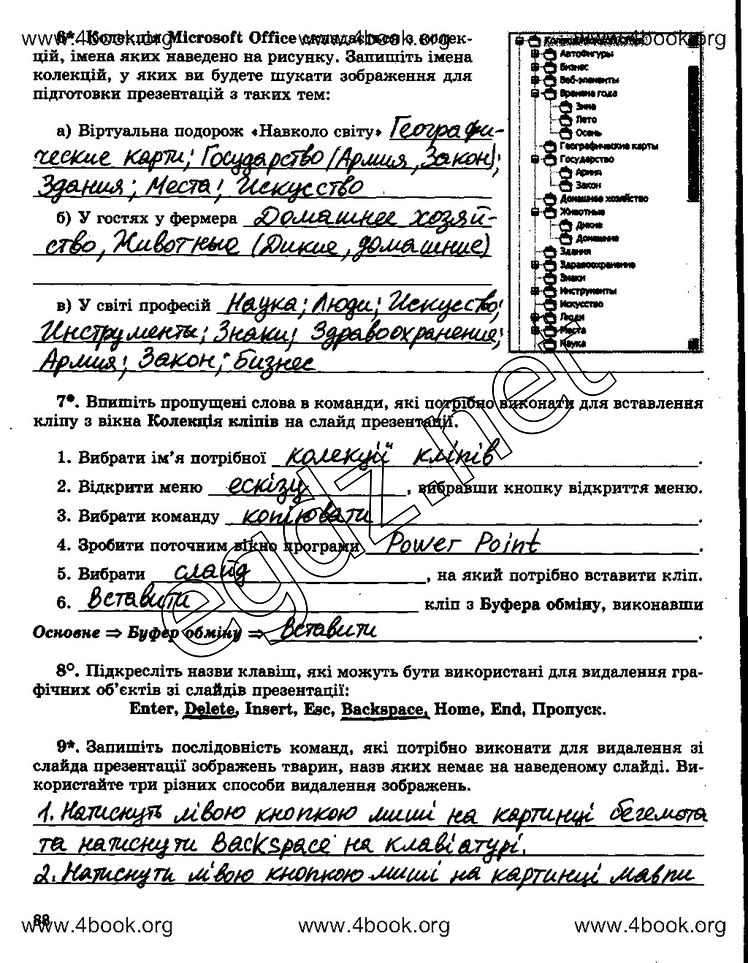 www.4book.org www.4book.org www.4book.org
6*. Колекція Microsoft Office складається з колек-
цій, імена яких наведено на рисунку. Запишіть імена
колекцій, у яких ви будете шукати зображення для
підготовки презентацій з таких тем:
а) Віртуальна подорож «Навколо світу» Географи-
ческие карти; Государство (Армия, Закон);
Здания; Места; Искусство
б) У гостях у фермера Домашнее хозяй-
ство, Животные (Дикие, домашние)
в) У світі професій Наука; Люди; Искусство;
Инструменты; Знаки; Здравоохранение;
Армия; Закон; Бизнес
Автофигуры
Бизнес
Веб-элементы
Времена года
Зима
Лето
Осень
Географические карты
Государство
Армия
Закон
Домашнее хозяйство
Животные
Дикие
Домашние
Здания
Здравоохранение
Знаки
Инструменты
Искусство
Люди
Места
Наука
7*. Впишіть пропущені слова в команди, які потрібно виконати для вставлення
кліпу з вікна Колекція кліпів на слайд презентації.
1. Вибрати ім’я потрібної колекції кліпів.
2. Відкрити меню ескізу, вибравши кнопку відкриття меню.
3. Вибрати команду копіювати.
4. Зробити поточним вікно програми Power Point.
5. Вибрати слайд, на який потрібно вставити кліп.
6. Вставити кліп з Буфера обміну, виконавши
Основне ⇒ Буфер обміну ⇒ Вставити.
egdz.net
8°. Підкресліть назви клавіш, які можуть бути використані для видалення гра-
фічних об’єктів зі слайдів презентації:
Enter, Delete, Insert, Esc, Backspace, Home, End, Пропуск.
9*. Запишіть послідовність команд, які потрібно виконати для видалення зі
слайда презентації зображень тварин, назв яких немає на наведеному слайді. Ви-
користайте три різних способи видалення зображень.
1. Натиснуть лівою кнопкою миші на картинці бегемота
та натиснути Backspace на клавіатурі.
2. Натиснути лівою кнопкою миші на картинці мавпи
88
www.4book.org www.4book.org www.4book.org